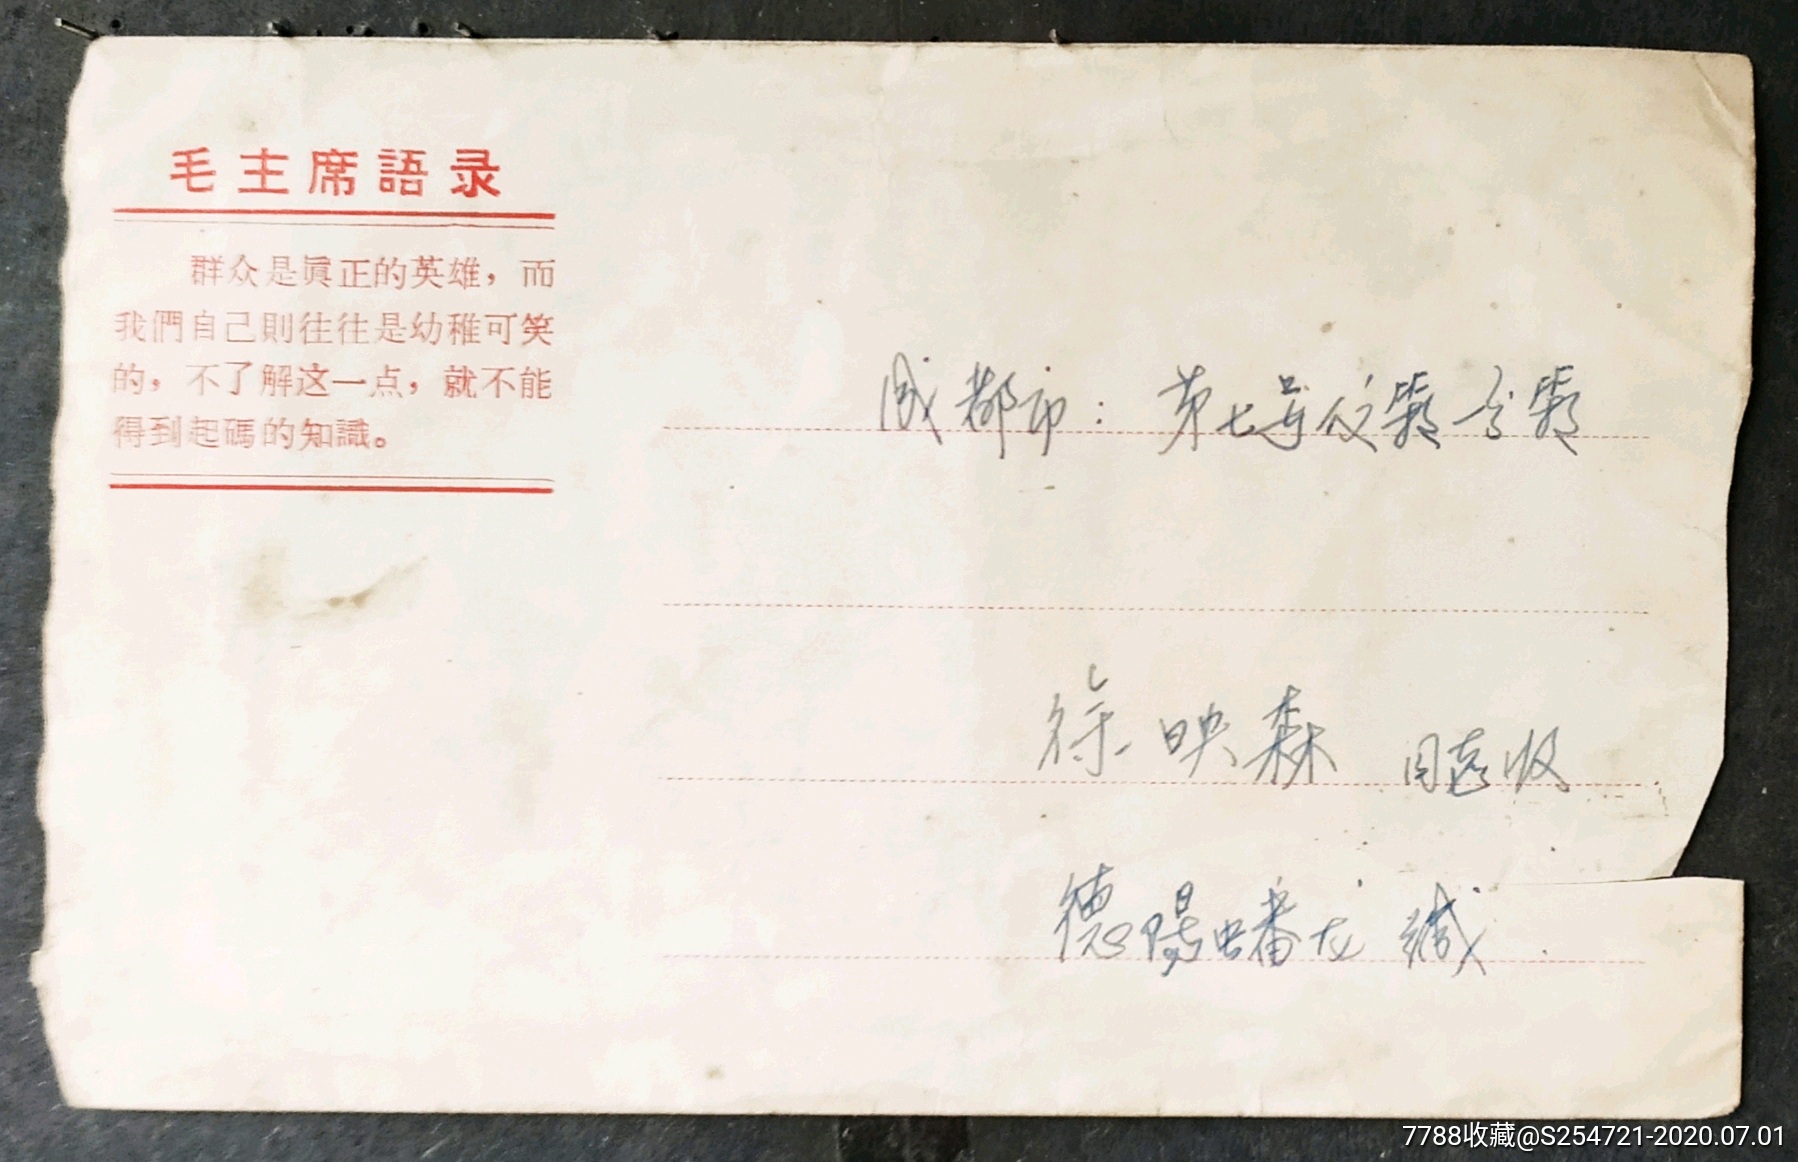 毛主席語录
群众是眞正的英雄，而
我們自己則往往是幼稚可笑
的，不了解这一点，就不能
得到起碼的知識。
成都市：第七号仪器分器
徐映森 同志收
德陽蟠龙 缄
7788收藏@S254721-2020.07.01